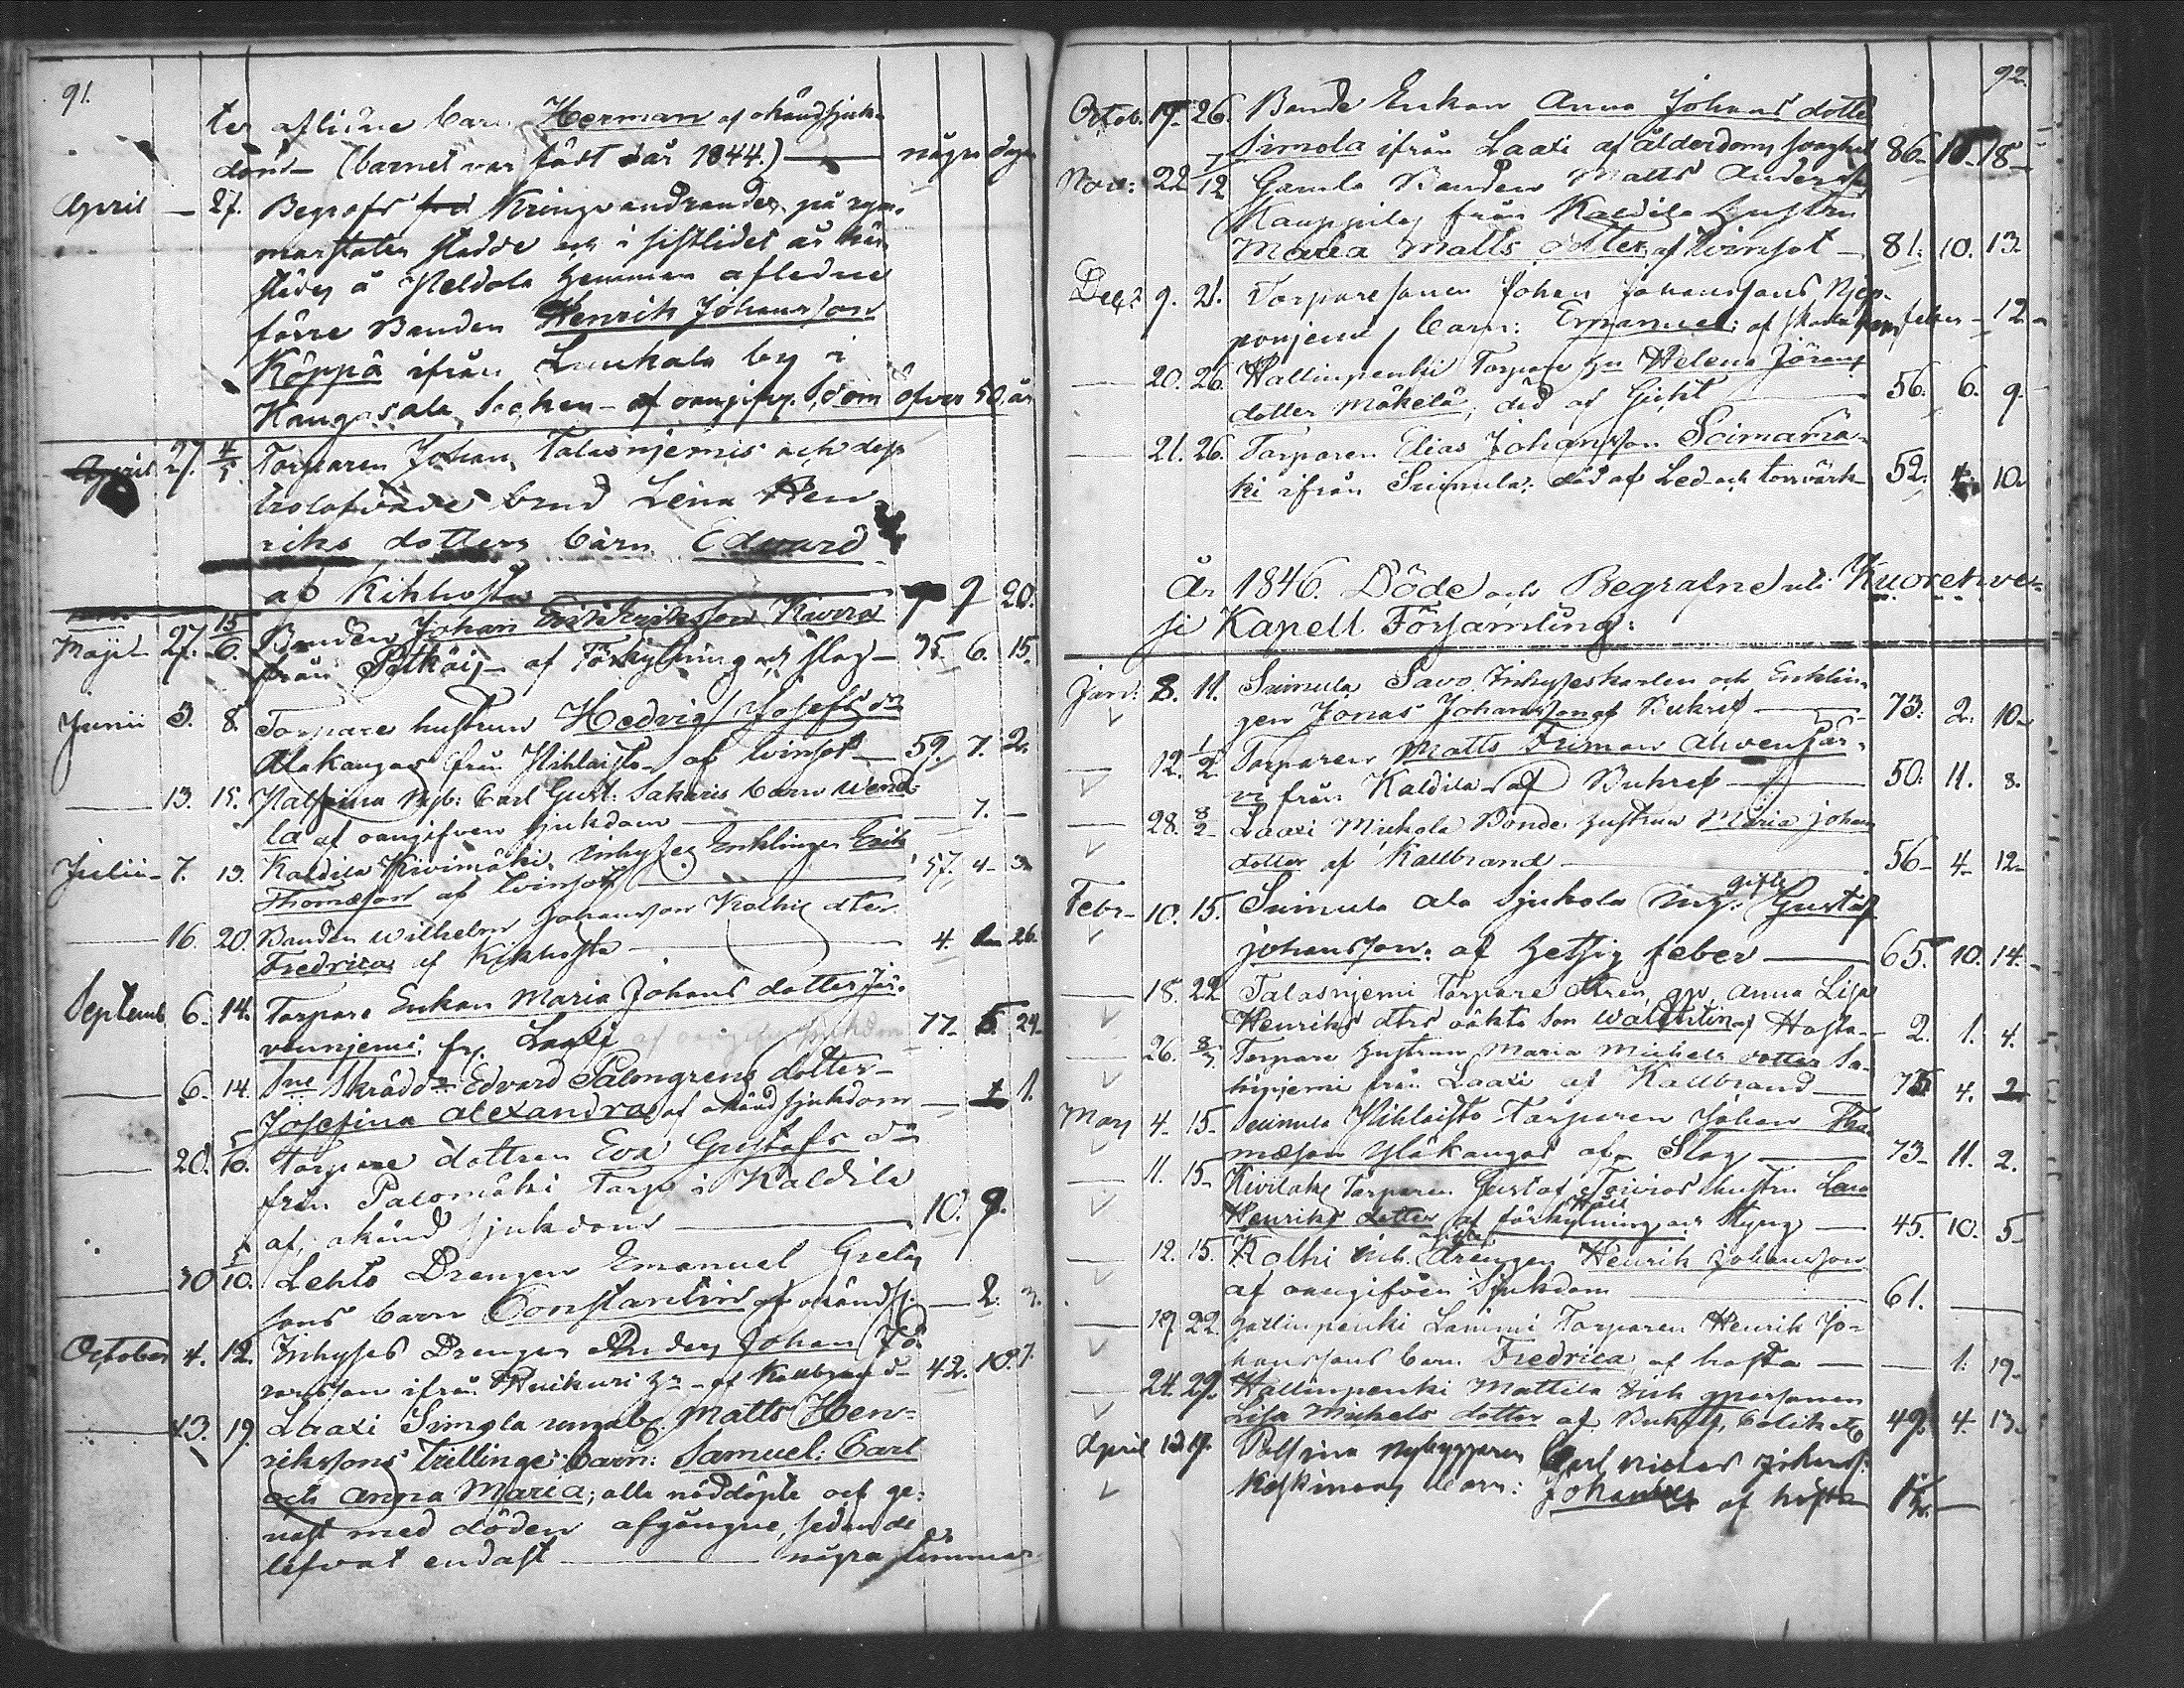 91.
ter aflidne barn Herman af okänd sjuk-
dom (barnet var född år 1844.) — några dagar
April — 27. Begrofs Kringvandrande, på rym-
marstaten stadde och i sistlidet år här-
städes å Heldola hemman aflidne
förre Bonden Henrik Johansson
Köppä ifrån Liuksala by i
Kangasala Sochen - af oangifv. Sdom öfver 50. år
April 27. 4/5. Torparen Johan Talasnjemis och dess
trolofvade brud Lena Hen
riks dotters barn Edvard
af Kikhosta — 9 20.
Maji 27. 15/6. Bonden Johan Erik Eriksson Kivra
från Pelkäis - af Förkylning och slag — 35 6. 15.
Junii 3. 8. Torpare hustrun Hedvig Josefs dr
Alakangas från Uihlaisto - af tvinsot — 59. 7. 2.
— 13. 15. Palsina Nyb: Carl Gust: Sakaris barn Wend-
la af oangifven sjukdom — 7. —
Julii — 7. 13. Kaldila Kivimäki, Inhyses Enklingen Erik
Thomasson af tvinsot — 57. 4. 3.
— 16. 20. Bonden Wilhelm Johansson Kolhis dter
Fredrica af Kikhosta — 4. 26.
Septemb 6. 14. Torpare Enkan Maria Johans dotter Jär-
vennjemi, fr. Laasi af oangifven sjukdom 77. 5. 24.
— 6. 14. Sne Skrädd: Edvard Palmgrens dotter
Josefina Alexandra af okänd sjukdom — 1.
— 20. 5/10. Torpare dottren Eva Gustafs dr
från Palomäki Torp i Kaldila
af okänd sjukdom — 10. 9.
30 5/10. Lehto Drengen Emanuel Grels
sons barn Constantin af okänd sj. — 2. 3.
October 4. 12. Inhyses Drengen Anders Johan Tö-
rnsson ifrån Huikuri hn - af Kallbrand 42. 10. 7.
— 13. 19. Laaxi Simola unga b. Matts Hen-
rikssons trillinge barn: Samuel: Carl
och Anna Maria; alla nöddöpte och ge-
nast med döden afgångne, sedan de
lefvat endast — några timmar
92.
Octob. 19. 26. Bonde Enkan Anna Johans dotter
Simola ifrån Laaxi af ålderdoms svaghet 86. 10. 18.
Nov: 22 7/12 Gamle Bonden Matts Anders
Kauppilas från Kaldila hustru
Maria Matts dotter af tvinsot — 81. 10. 13.
Decr 9. 21. Torparesonen Johan Johanssons
ponjemi, barn: Emanuel: af feber — 12
— 20. 26. Hallinpenki Torpare hu Helena Jörans
dotter Mäkelä; död af Gicht — 56. 6. 9.
— 21. 26. Torparen Elias Johansson Soimamä-
ki ifrån Suinula: död af Led och torrvärk 52. 4. 10.
År 1846. Döde och Begrafne uti Kuorehve-
si Kapell Församling:
Jan: 8. 11. Suinula Savo Inhyseskarlen och Enklin-
gen Jonas Johansson af Bukref — 73. 2. 10.
— 12. 1/2. Torparen Matts Friman Ahvenjär-
vi från Kaldila af Bukref — 50. 11. 8.
— 28. 8/2 Laaxi Mickola Bonde hustrun Maria Johans
dotter af Kallbrand — 56 — 4 — 12
Febr — 10. 15. Suinula Ala Sjukola Inh: gifte Gustaf
Johansson: af hetsig feber — 65. 10. 14.
— 18. 22 Talasnjemi Torpare dtren gp Anna Lisa
Henriks dtrs oäkta son Walentin af Hosta — 2. 1. 4.
— 26. 8/3. Torpare hustrun Maria Michels dotter Sa-
hinjemi från Laaxi af Kallbrand — 75 4. 2
Mars 4. 15. Suinula Uihlaisto Torparen Johan Tho-
masson Yläkangas af Slag — 73. 11. 2.
— 11. 15. Kivilaks Torparen Gustaf Toivios hustru Lena
Henriks dotter af förkylning och Håll Styng — 45. 10. 5
— 12. 15. Kolhi Inh. ogifte drengen Henrik Johansson
af oangifven Sjukdom — 61. —
— 19. 22. Hallinpenki Lammi Torparen Henrik Jo-
hanssons barn Fredrica af hosta — 1. 19.
— 24. 29. Hallinpenki Mattila Inh qpersonen
Lisa Michels dotter af Bukref, Colik etc 49. 4. 13.
April 12. 19. Palsina Nybyggaren Carl Niclas Johanss:
Koskinens barn: Johannes af hosta 1½ —